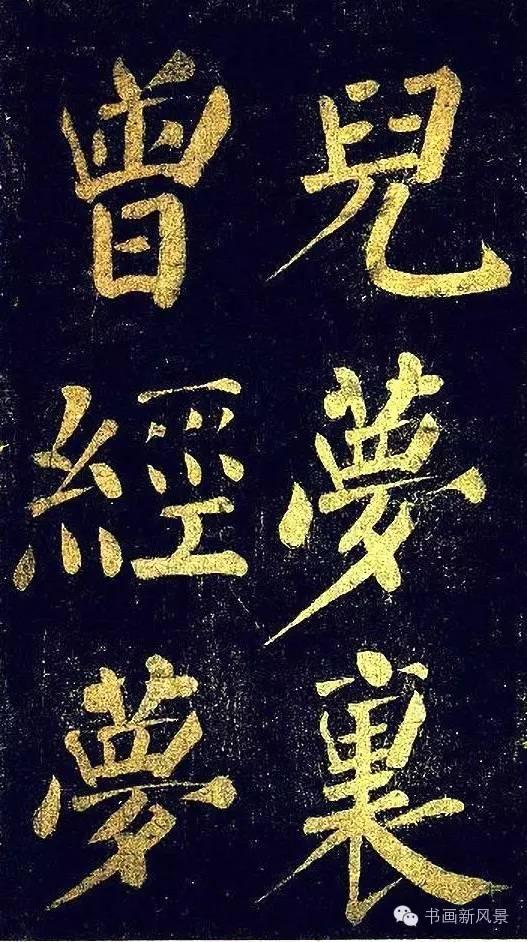 兒夢裏
曾經夢
书画新风景